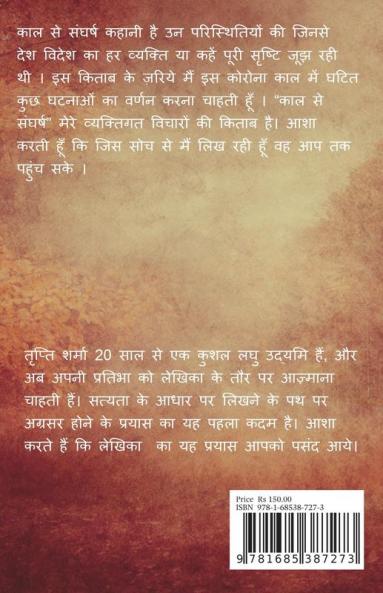 काल से संघर्ष कहानी है उन परिस्थितियों की जिनसे
देश विदेश का हर व्यक्ति या कहें पूरी सृष्टि जूझ रही
थी । इस किताब के ज़रिये मैं इस कोरोना काल में घटित
कुछ घटनाओं का वर्णन करना चाहती हूँ । “काल से
संघर्ष” मेरे व्यक्तिगत विचारों की किताब है। आशा
करती हूँ कि जिस सोच से मैं लिख रही हूँ वह आप तक
पहुंच सके ।
तृप्ति शर्मा 20 साल से एक कुशल लघु उदयमि हैं, और
अब अपनी प्रतिभा को लेखिका के तौर पर आज़्माना
चाहती हैं। सत्यता के आधार पर लिखने के पथ पर
अग्रसर होने के प्रयास का यह पहला कदम है। आशा
करते हैं कि लेखिका का यह प्रयास आपको पसंद आये।
Price Rs 150.00
ISBN 978-1-68538-727-3
9 781685 387273